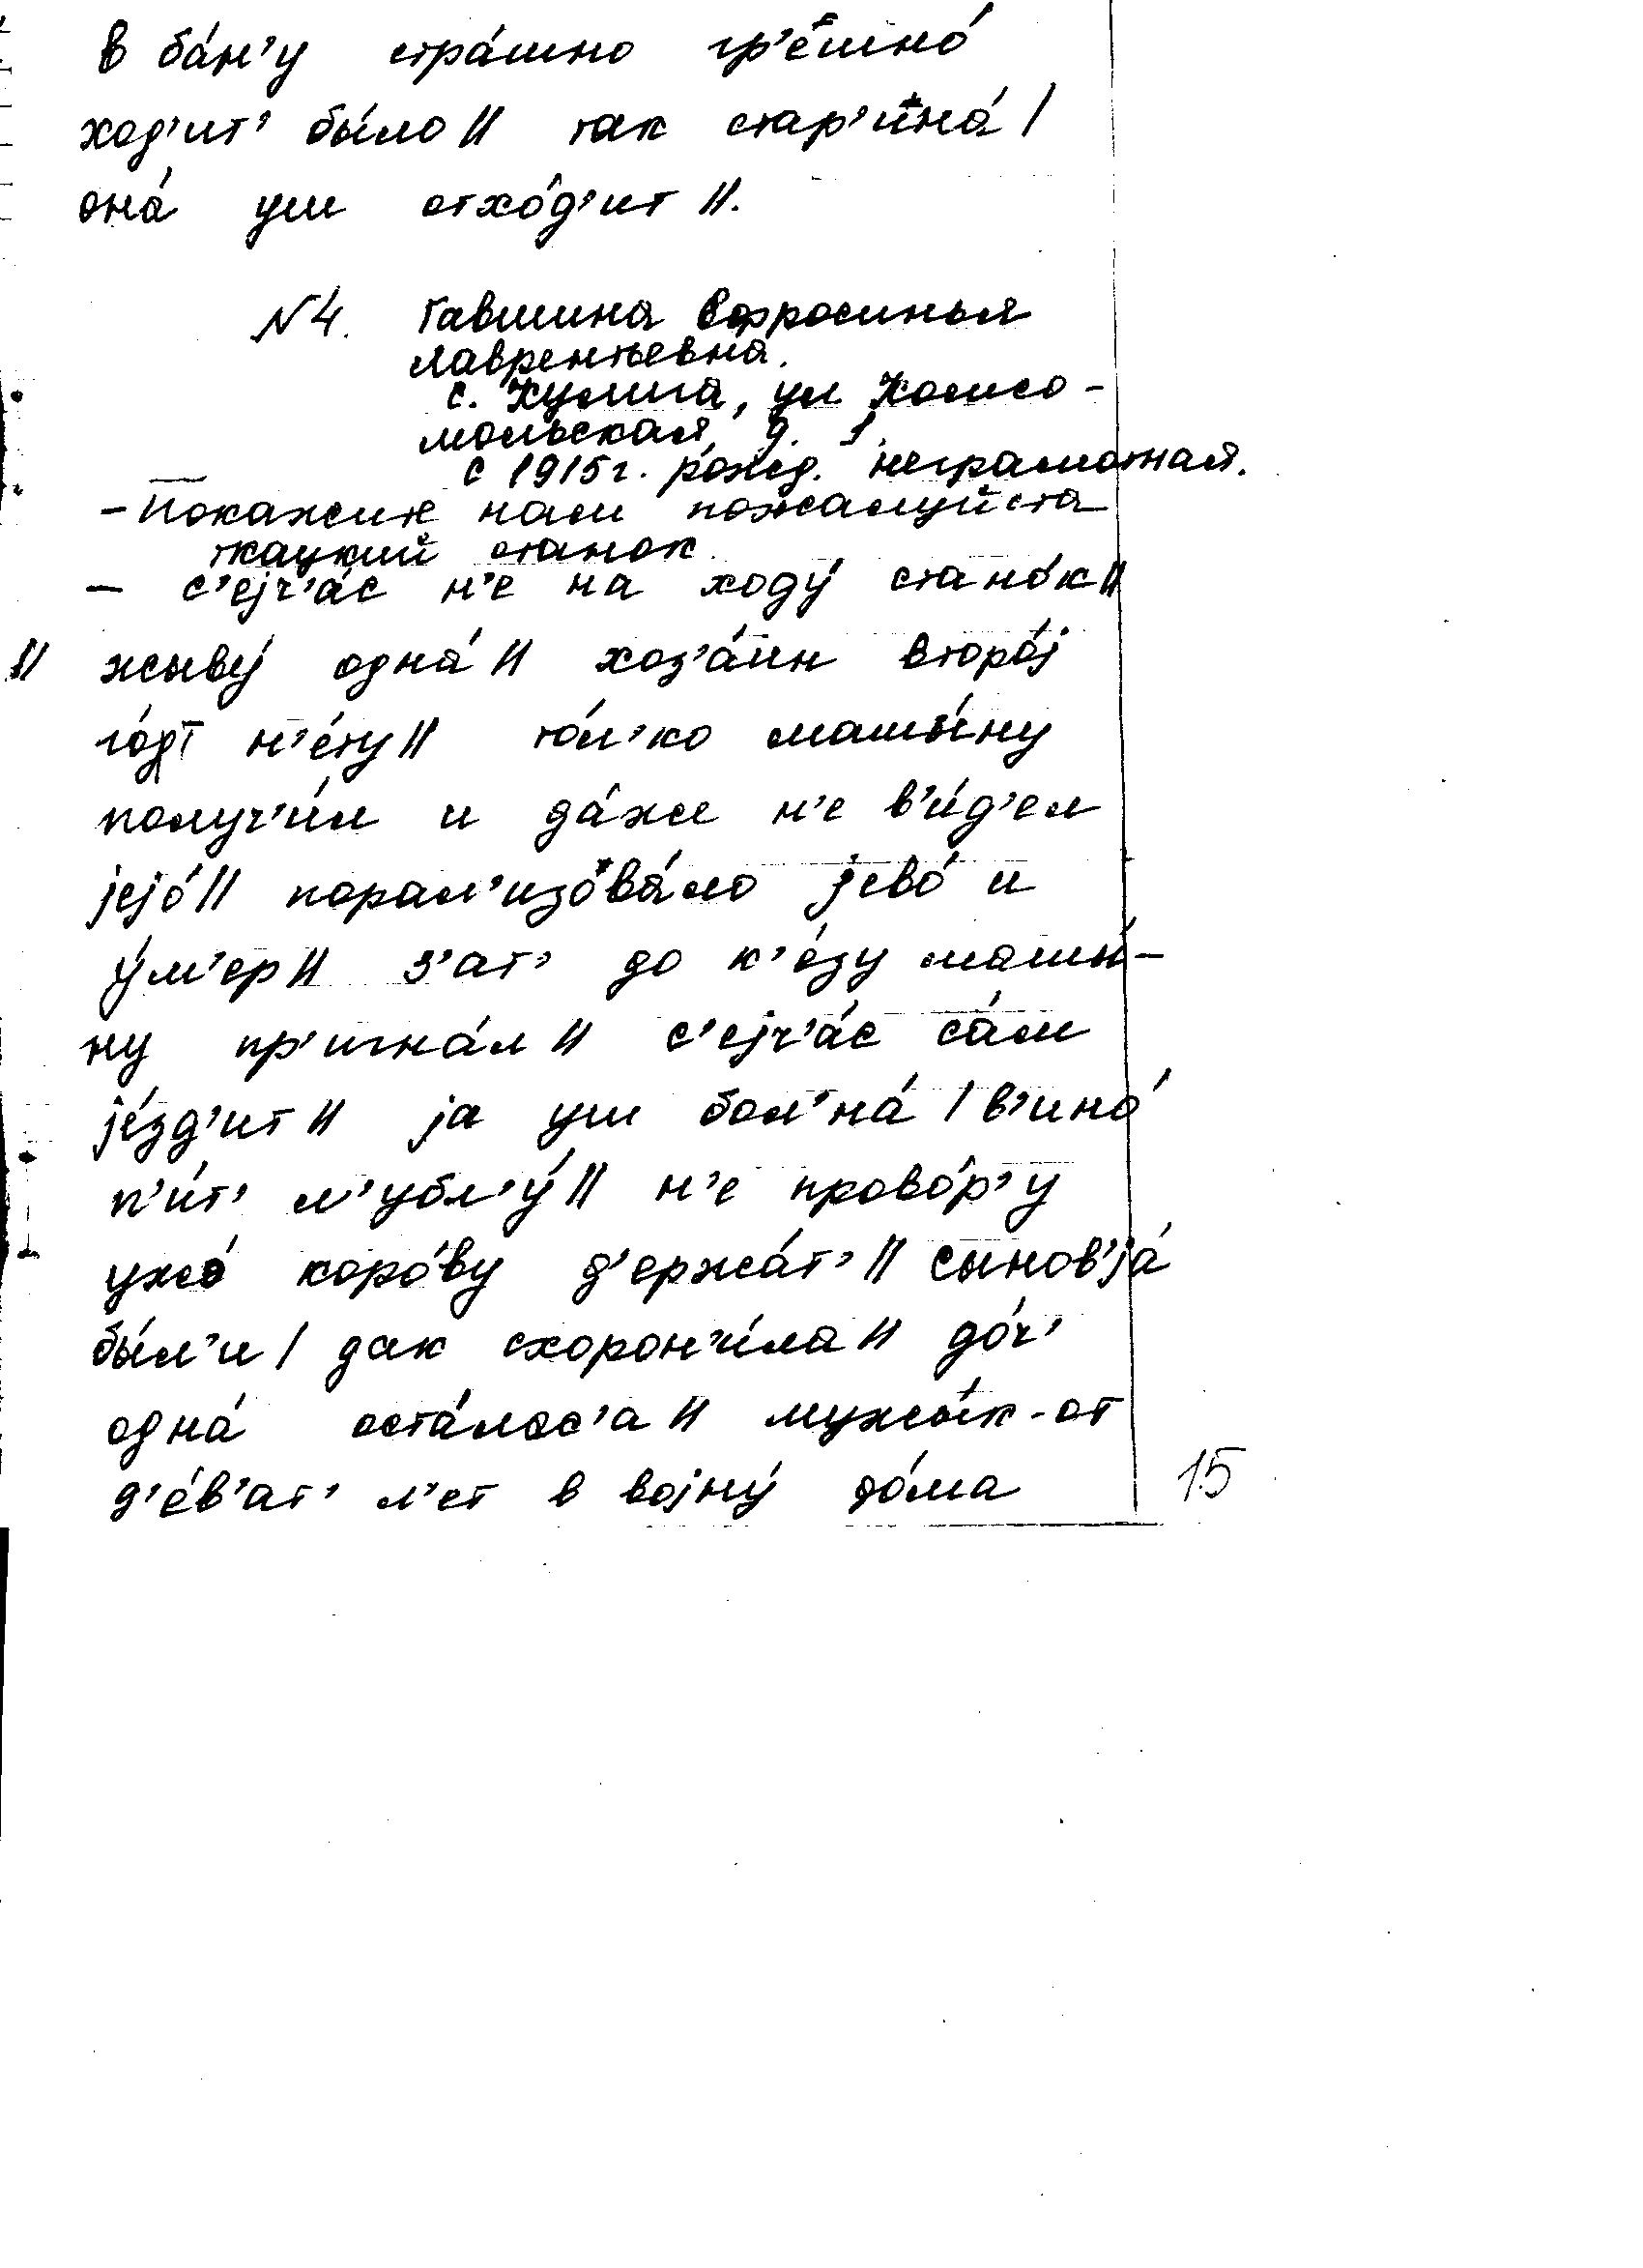 в ба́н'у стра́шно гр'е́шно́
ход'ит' бы́ло // так стар'ина́ /
она́ уш отхо́д'ит //.
N4. Гавшина Ефросинья
Лаврентьевна.
с. Кулига, ул Комсо-
мольская, д. 1.
с 1915г. рожд. неграмотная.
– Покажите нам пожалуйста
ткацкий станок
– с'ејч'а́с н'е на ходу́ стано́к //
// жыву́ одна́ // хоз'а́ин второ́ј
го́дт н'е́ту // то́л'ко машы́ну
получ'и́л и да́же н'е в'и́д'ел
јејо́ // порал'изова́ло јево́ и
у́м'ер // з'ат' до к'е́зу машы́-
ну пр'игна́л // с'ејч'а́с са́м
је́зд'ит // ја уш бол'на́ / в'ино́
п'и́т' л'убл'у́ // н'е прово́р'у
ужо́ коро́ву д'ержа́т' // сынов'ја́
бы́л'и / дак схорон'и́ла // до́ч'
одна́ оста́лос'а // мужы́к-от
д'е́в'ат' л'ет в војну́ до́ма
15